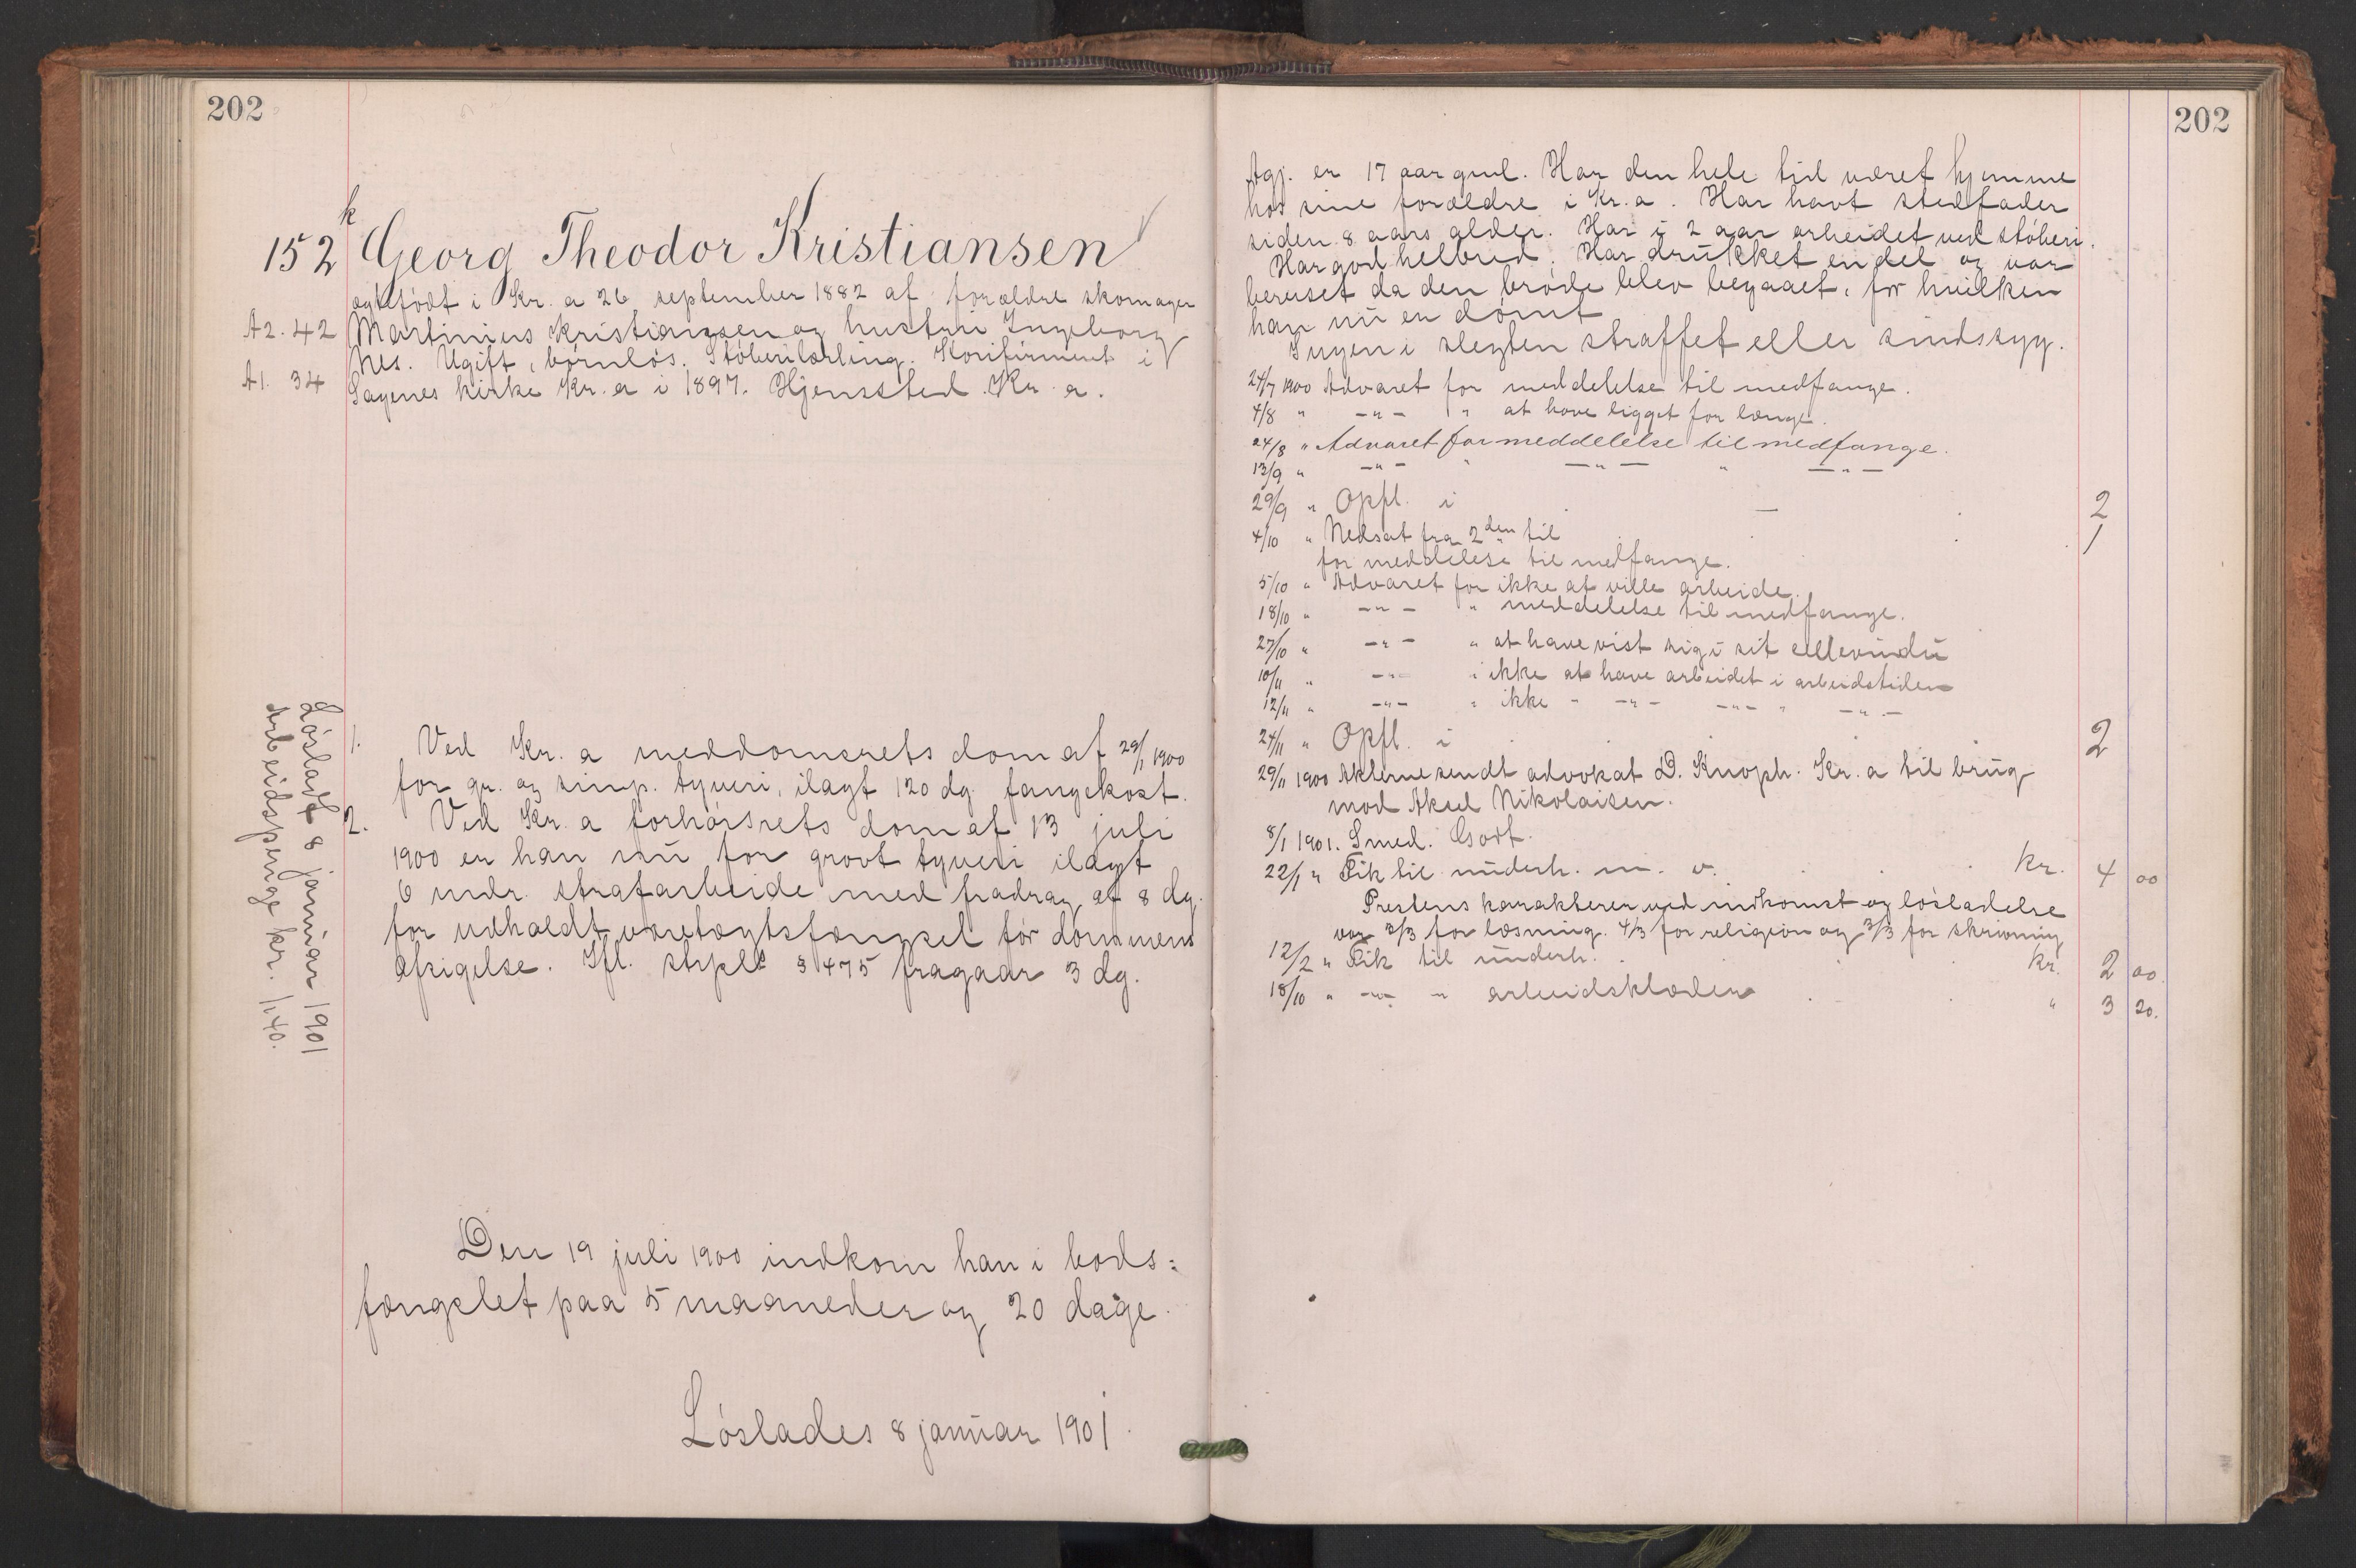 202
k
152 Georg Theodor Kristiansen
ægtefødt i Kr. a 26 september 1882 af forældre skomager
A2. 42 Martinius Kristiansen og hustru Ingeborg
Nes. Ugift, børnløs. Støberilærling. Konfirmeret i
A1. 34 Sagenes kirke Kr. a i 1897. Hjemsted Kr. a.
1. Ved Kr. a meddomsrets dom af 29/1 1900
for gr. og simp. tyveri, ilagt 120 dg. fangekost.
2. Ved Kr. a forhørsrets dom af 13 juli
1900 er han nu for grovt tyveri ilagt
6 mdr. strafarbeide med fradrag af 8 dg.
for udholdt varetægtsfængsel før dommens
afsigelse. Ifl. strpl. § 475 fragaar 3 dg.
Løsladt 8 januar 1901
Arbeidspenge kr. 1,40.
Den 19 juli 1900 indkom han i bods=
fængslet paa 5 maaneder og 20 dage.
Løslades 8 januar 1901.
202
Agj. er 17 aar gml. Har den hele tid været hjemme
hos sine forældre i Kr. a. Har havt stedfader
siden 8 aars alder. Har i 2 aar arbeidet ved støberi.
Har god helbred. Har drukket en del og var
beruset da den brøde blev begaaet, for hvilken
han nu er dømt
Ingen i slegten straffet eller sindssyg.
24/7 1900 Advaret for meddelelse til medfange.
4/8 " -"- " at have ligget for længe.
24/8 " Advaret for meddelelse til medfange.
13/9 " -"- " -"- " -"-
29/9 " Opfl. i - 2
4/10 " Nedsat fra 2den til 1
for meddelelse til medfange.
5/10 " Advaret for ikke at ville arbeide.
18/10 " -"- " meddelelse til medfange.
27/10 " -"- " at have vist sig i sit cellevindu
10/11 " -"- " ikke at have arbeidet i arbeidstiden
12/11 " -"- " ikke - -"- -"- " -"-
24/11 " Opfl. i 2
29/11 1900 Akterne sendt advokat D. Knoph. Kr. a til brug
mod Aksel Nikolaisen.
8/1 1901. Smed. Godt.
22/1 " Fik til underh. m. v. Kr. 4 00
Prestens karakterer ved indkomst og løsladelse
var 3/3 for læsning. 4/3 for religion og 3/3 for skrivning
12/2 " Fik til underh. Kr. 2 00
18/10 " -"- " arbeidsklæder " 3 20.